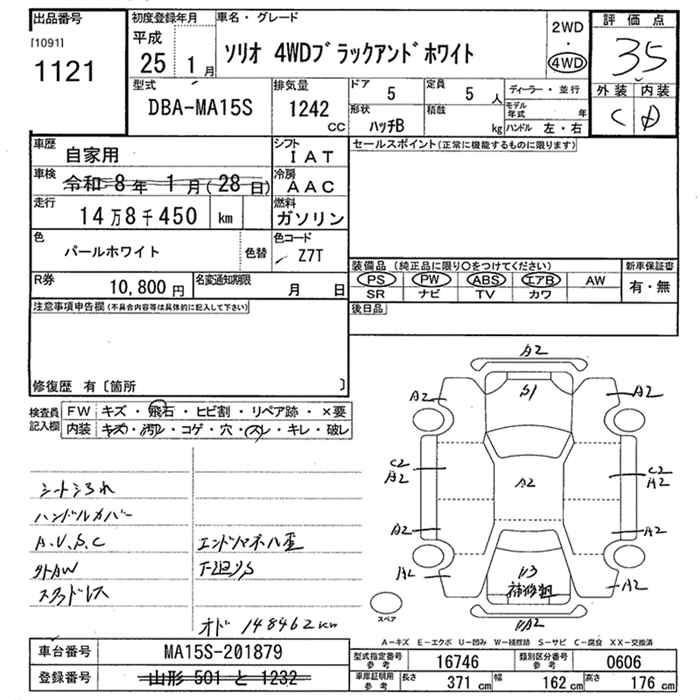 出品番号
[1091]
1121
初度登録年月
平成
25 1月
車名・グレード
ソリオ 4WDブラックアンドホワイト
2WD
・
4WD
評価点
35
外装 内装
C D
型式
DBA-MA15S
排気量
1242
cc
ドア
5
定員
5人
形状
ハッチB
積載
kg
ディーラー・並行
モデル年式 年
ハンドル 左・右
車歴
自家用
シフト
IAT
車検
令和 8年 1月(28日)
冷房
AAC
走行
14万8千450 km
燃料
ガソリン
色
パールホワイト
色替
色コード
Z7T
R券
10,800円
名変通知期限
月 日
セールスポイント(正常に機能するものに限ります)
装備品(純正品に限り○をつけてください)
PS PW ABS エアB AW
SR ナビ TV カワ
新車保証書
有・無
後日品
注意事項申告欄(不具合内容等は具体的に記入して下さい)
修復歴 有〔箇所 〕
検査員記入欄
FW キズ・飛石・ヒビ割・リペア跡・×要
内装 キズ・汚れ・コゲ・穴・スレ・キレ・破レ
ハンドルカバー
A,V,S,C
外AW
オド 148462km
A2
A2
S1
A2
C2
A2
A2
C2
A2
A2
A2
A2
A2
スペア
A-キズ E-エクボ U-凹み W-補修跡 S-サビ C-腐食 XX-交換済
車台番号
MA15S-201879
登録番号
山形 501 と 1232
型式指定番号
参考
16746
類別区分番号
参考
0606
車庫証明用
参考
長さ 371cm
幅 162cm
高さ 176cm